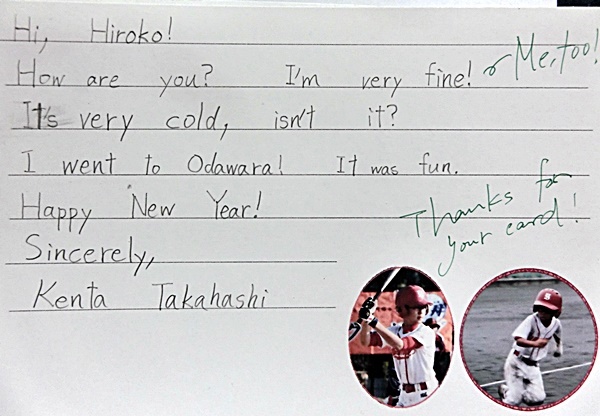 Hi, Hiroko!
How are you? I'm very fine! Me, too!
It's very cold, isn't it?
I went to Odawara! It was fun.
Happy New Year!
Thanks for
your card!
Sincerely,
Kenta Takahashi